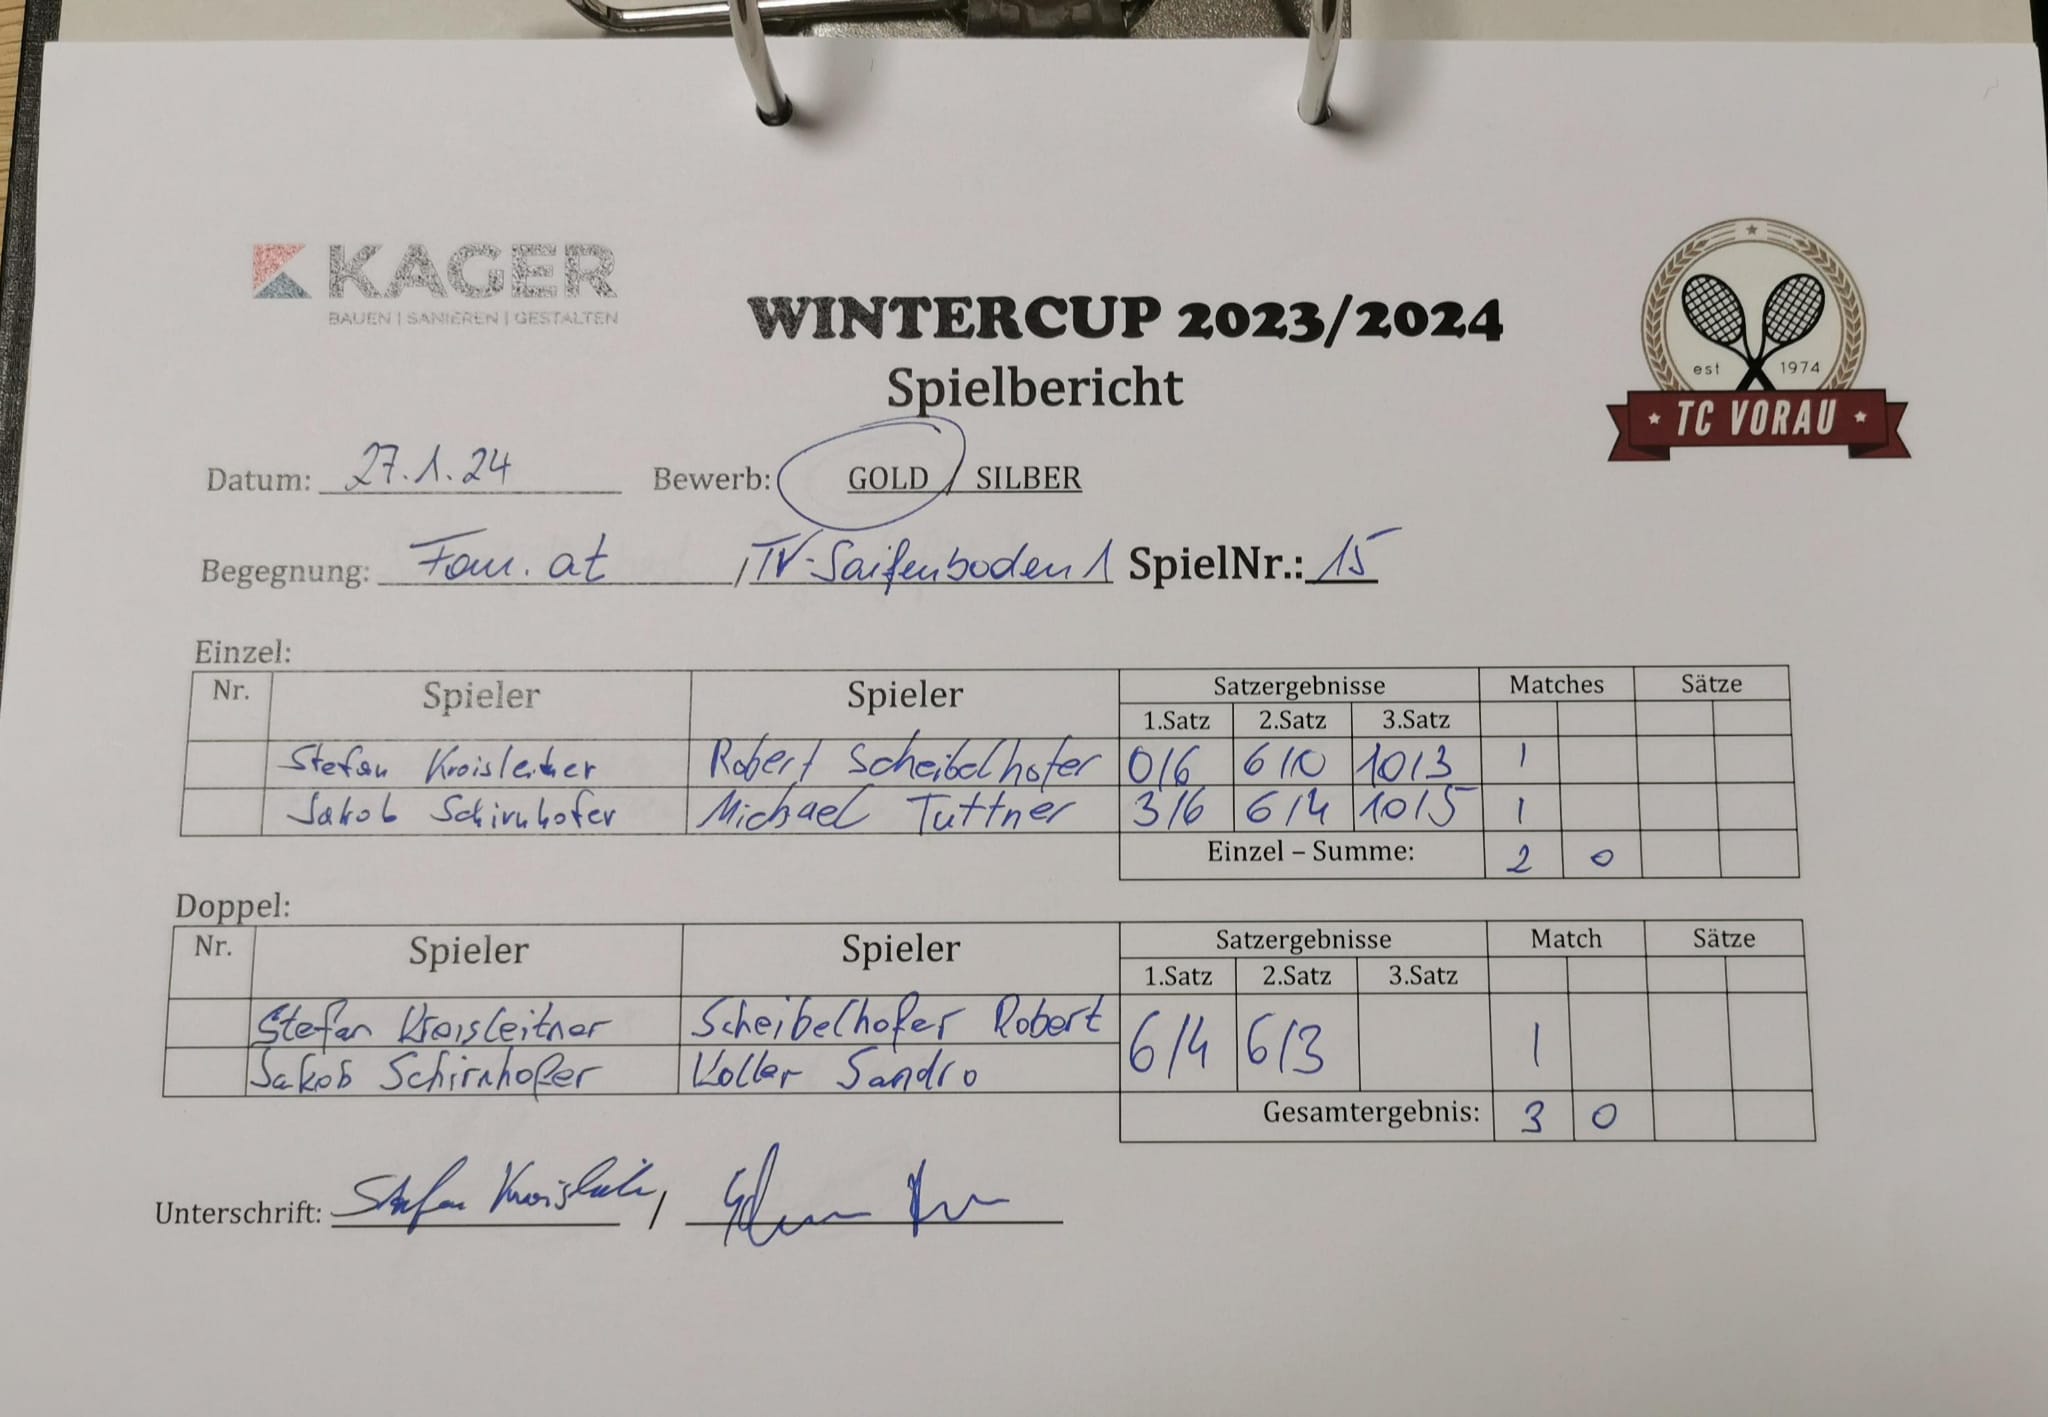 KAGER
BAUEN | SANIEREN | GESTALTEN
WINTERCUP 2023/2024
Spielbericht
est 1974
TC VORAU
Datum: 27.1.24 Bewerb: GOLD / SILBER
Begegnung: Fam. at / TV-Saifenboden 1 SpielNr.: 15
Einzel:
Nr. Spieler Spieler Satzergebnisse Matches Sätze
1.Satz 2.Satz 3.Satz
Stefan Kroisleitner Robert Scheibelhofer 0/6 6/0 10/3 1
Jakob Schirnhofer Michael Tuttner 3/6 6/4 10/5 1
Einzel – Summe: 2 0
Doppel:
Nr. Spieler Spieler Satzergebnisse Match Sätze
1.Satz 2.Satz 3.Satz
Stefan Kroisleitner Scheibelhofer Robert 6/4 6/3 1
Jakob Schirnhofer Koller Sandro
Gesamtergebnis: 3 0
Unterschrift: Stefan Kroisleitner /